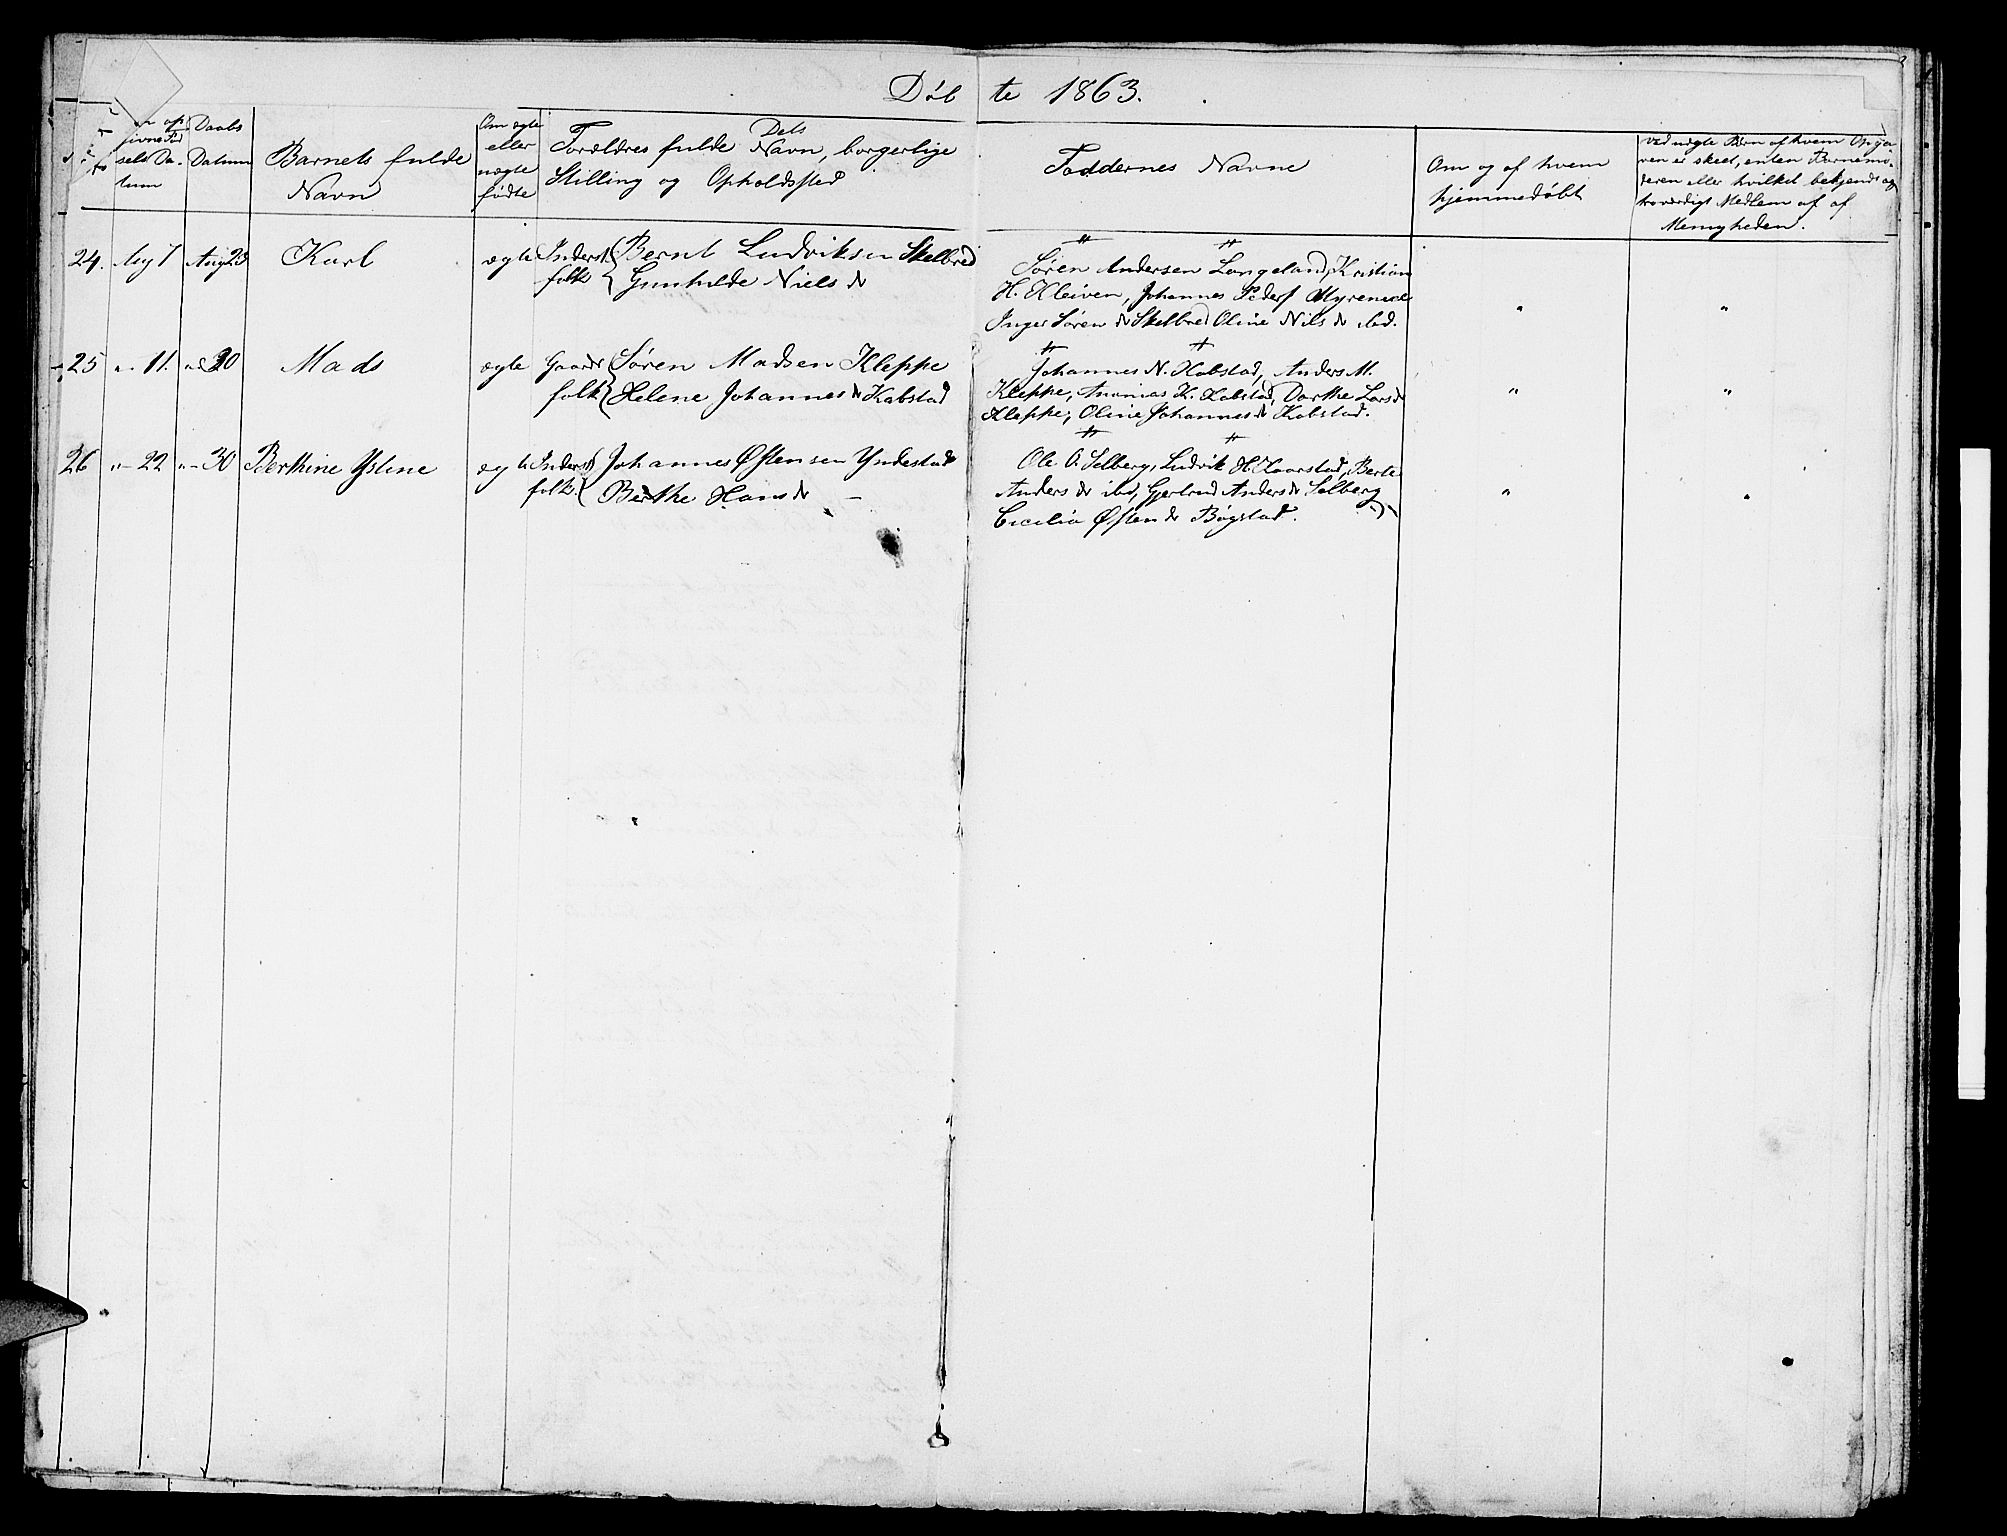 Døb te 1863.
Daabs
Datum
Barnets fulde
Navn
Om ægte
eller
uægte
fødte
Forældres fulde Dets Navn, borgerlige
Stilling og Opholdssted
Faddernes Navne
Om og af hvem
hjemmedøbt
ved uægte Børn af hvem Opga-
ven er skeet, enten Barnemo-
deren eller hvilket bekjendt og
troværdigt Medlem af af
Menigheden.
24. Aug 7 Aug 23 Karl ægte Inderst folk Bernt Ludviksen Skelbred
Gunhilde Niels dr
Søren Andersen Langeland, Kristian
H. Kleiven, Johannes Peders Myrene
Inger Søren dr Skelbred Oline Nils dr ibd.
" "
25 " 11. " 30 Mads ægte Gaard folk Søren Madsen Kleppe
Helene Johannes dr Kabstad
Johannes N. Kobstad, Anders M.
Kleppe, Ananias K. Kobstad, Dorthe Lars dr
Kleppe, Oline Johannes dr Kobstad.
" "
26 " 22 " 30 Berthine Ysline ægte Inderst folk Johannes Østensen Yndestad
Berthe Hans dr —
Ole O. Selberg, Ludvik H. Haarstad, Berte
Anders dr ibd, Gjertrud Anders dr Selberg
Cecilia Østen dr Bøgstad.
" "